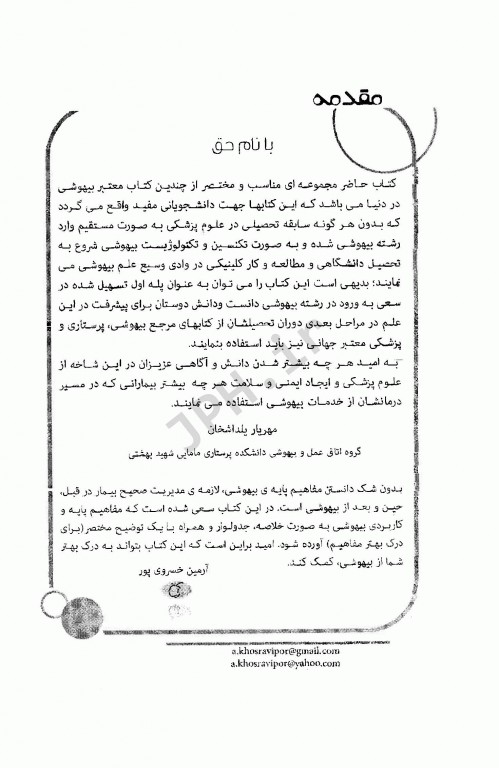 مقدمه
با نام حق
کتاب حاضر مجموعه ای مناسب و مختصر از چندین کتاب معتبر بیهوشی
در دنیا می باشد که این کتابها جهت دانشجویانی مفید واقع می گردد
که بدون هر گونه سابقه تحصیلی در علوم پزشکی به صورت مستقیم وارد
رشته بیهوشی شده و به صورت تکنسین و تکنولوژیست بیهوشی شروع به
تحصیل دانشگاهی و مطالعه و کار کلینیکی در وادی وسیع علم بیهوشی می
نمایند؛ بدیهی است این کتاب را می توان به عنوان پله اول تسهیل شده در
سعی به ورود در رشته بیهوشی دانست ودانش دوستان برای پیشرفت در این
علم در مراحل بعدی دوران تحصیلشان از کتابهای مرجع بیهوشی، پرستاری و
پزشکی معتبر جهانی نیز باید استفاده بنمایند.
به امید هر چه بیشتر شدن دانش و آگاهی عزیزان در این شاخه از
علوم پزشکی و ایجاد ایمنی و سلامت هر چه بیشتر بیمارانی که در مسیر
درمانشان از خدمات بیهوشی استفاده می نمایند.
مهریار یلداشخان
گروه اتاق عمل و بیهوشی دانشکده پرستاری مامایی شهید بهشتی
بدون شک دانستن مفاهیم پایه ی بیهوشی، لازمه ی مدیریت صحیح بیمار در قبل،
حین و بعد از بیهوشی است. در این کتاب سعی شده است که مفاهیم پایه و
کاربردی بیهوشی به صورت خلاصه، جدولوار و همراه با یک توضیح مختصر(برای
درک بهتر مفاهیم) آورده شود. امید براین است که این کتاب بتواند به درک بهتر
شما از بیهوشی، کمک کند.
آرمین خسروی پور
a.khosravipor@gmail.com
a.khosravipor@yahoo.com
JPH.ir